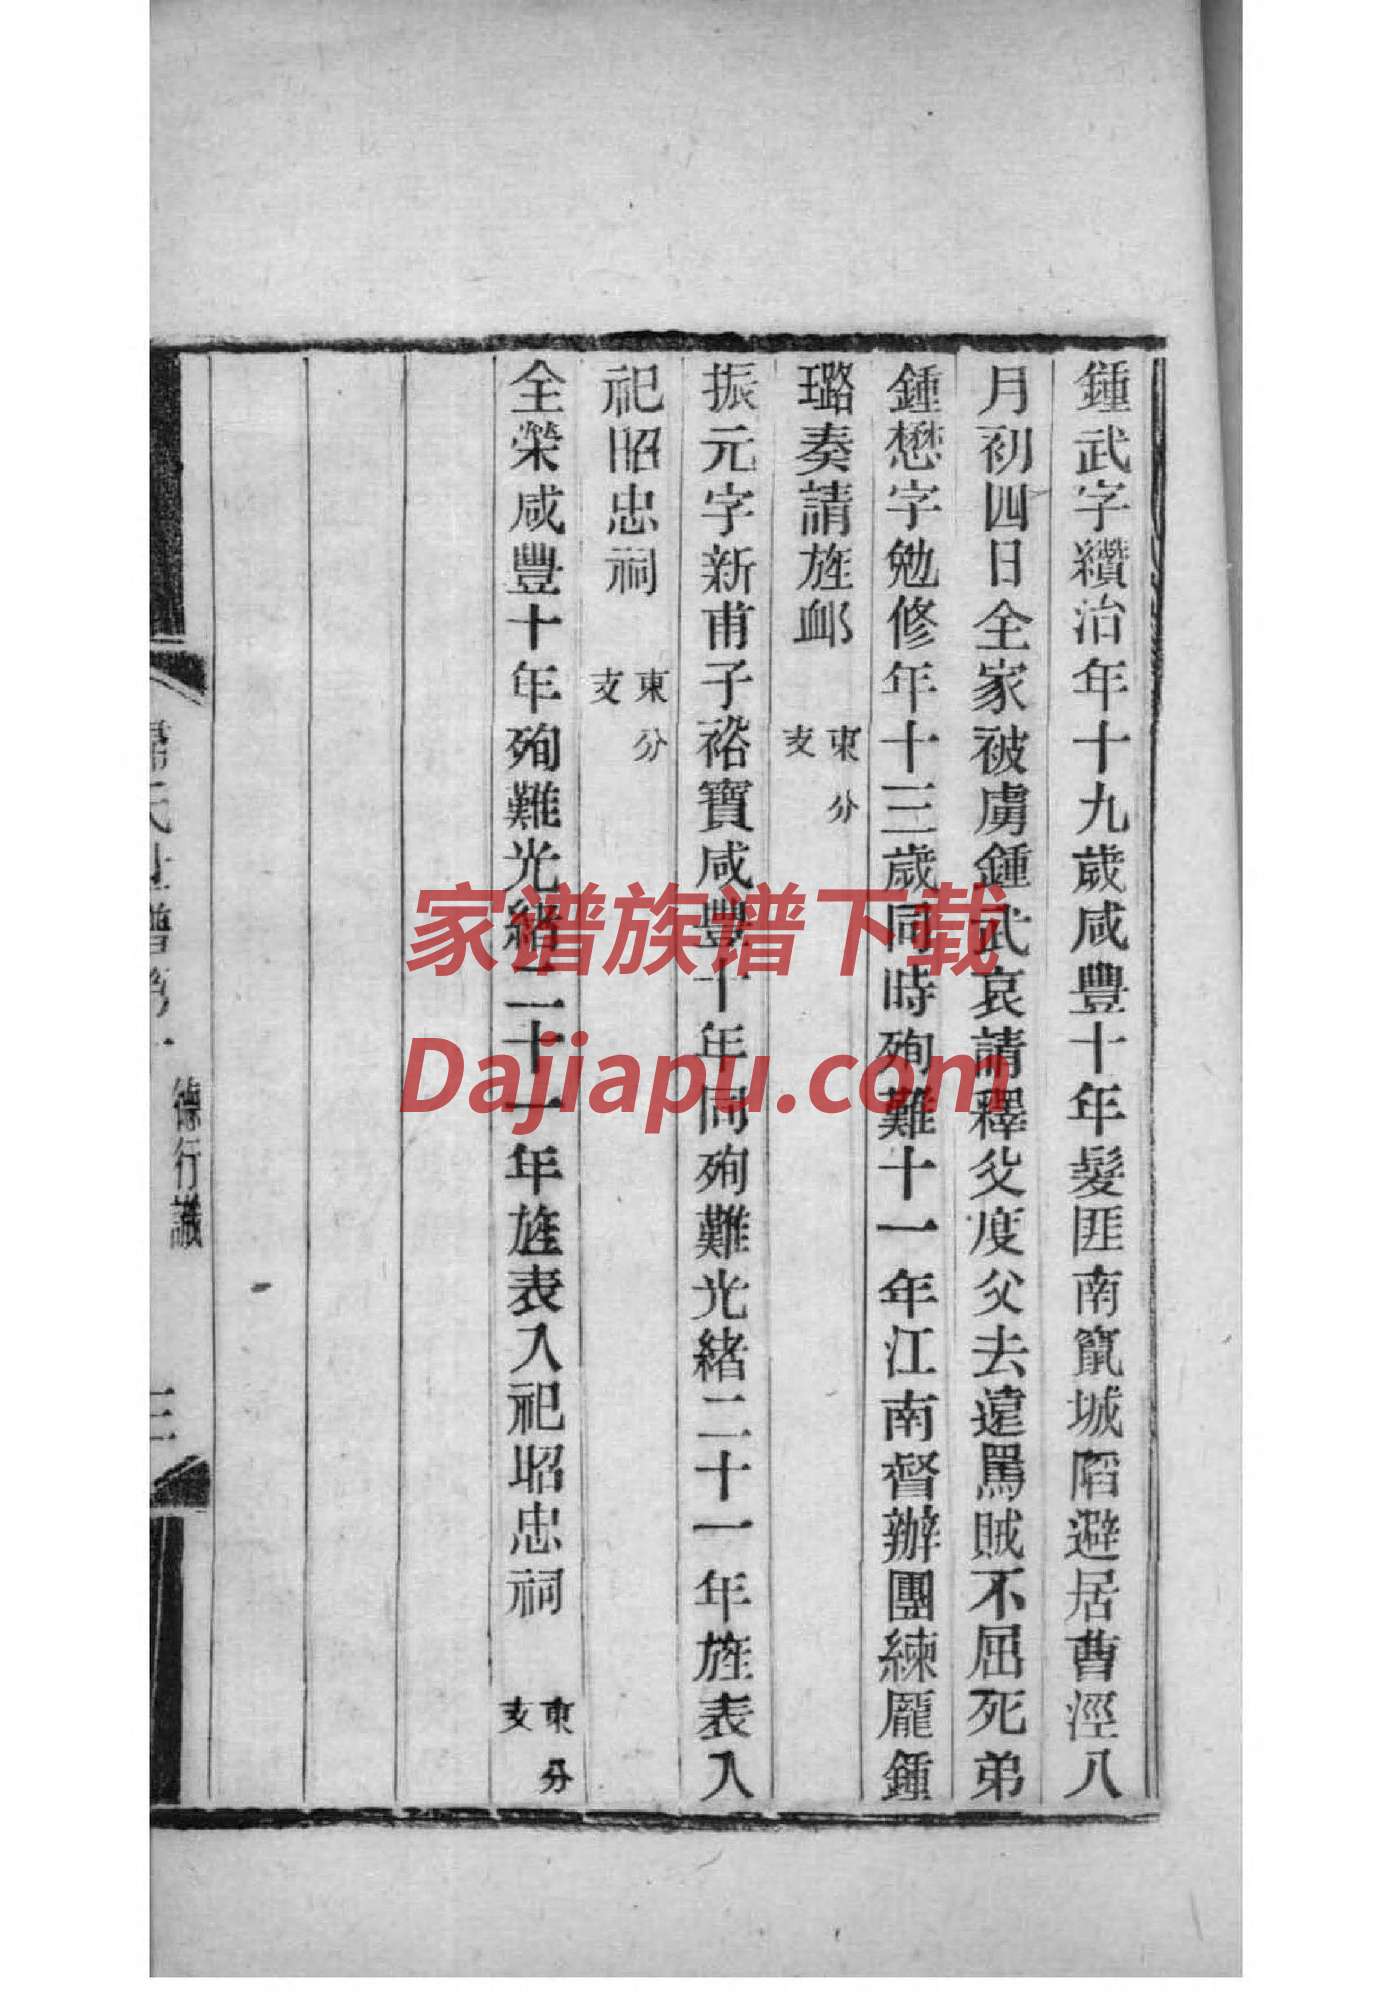 鍾武字纘治年十九歲咸豐十年髮匪南竄城陷避居曹涇八
月初四日全家被虜鍾武哀請釋父度父去遠罵賊不屈死弟
鍾懋字勉修年十三歲同時殉難十一年江南督辦團練龐鍾
璐奏請旌卹 東分支
振元字新甫子裕寶咸豐十年同殉難光緒二十一年旌表入
祀昭忠祠 東分支
全榮咸豐十年殉難光緒二十一年旌表入祀昭忠祠 東分支
德行識
三
家谱族谱下载
Dajiapu.com